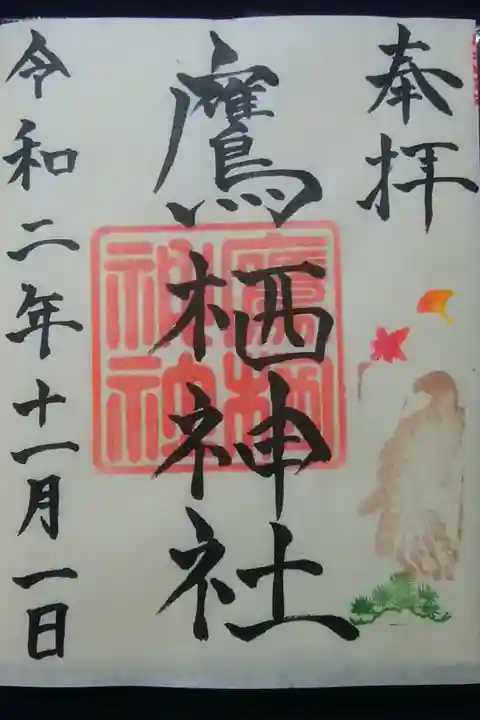 奉拝
鷹栖神社
鷹栖
神社
令和二年十一月一日